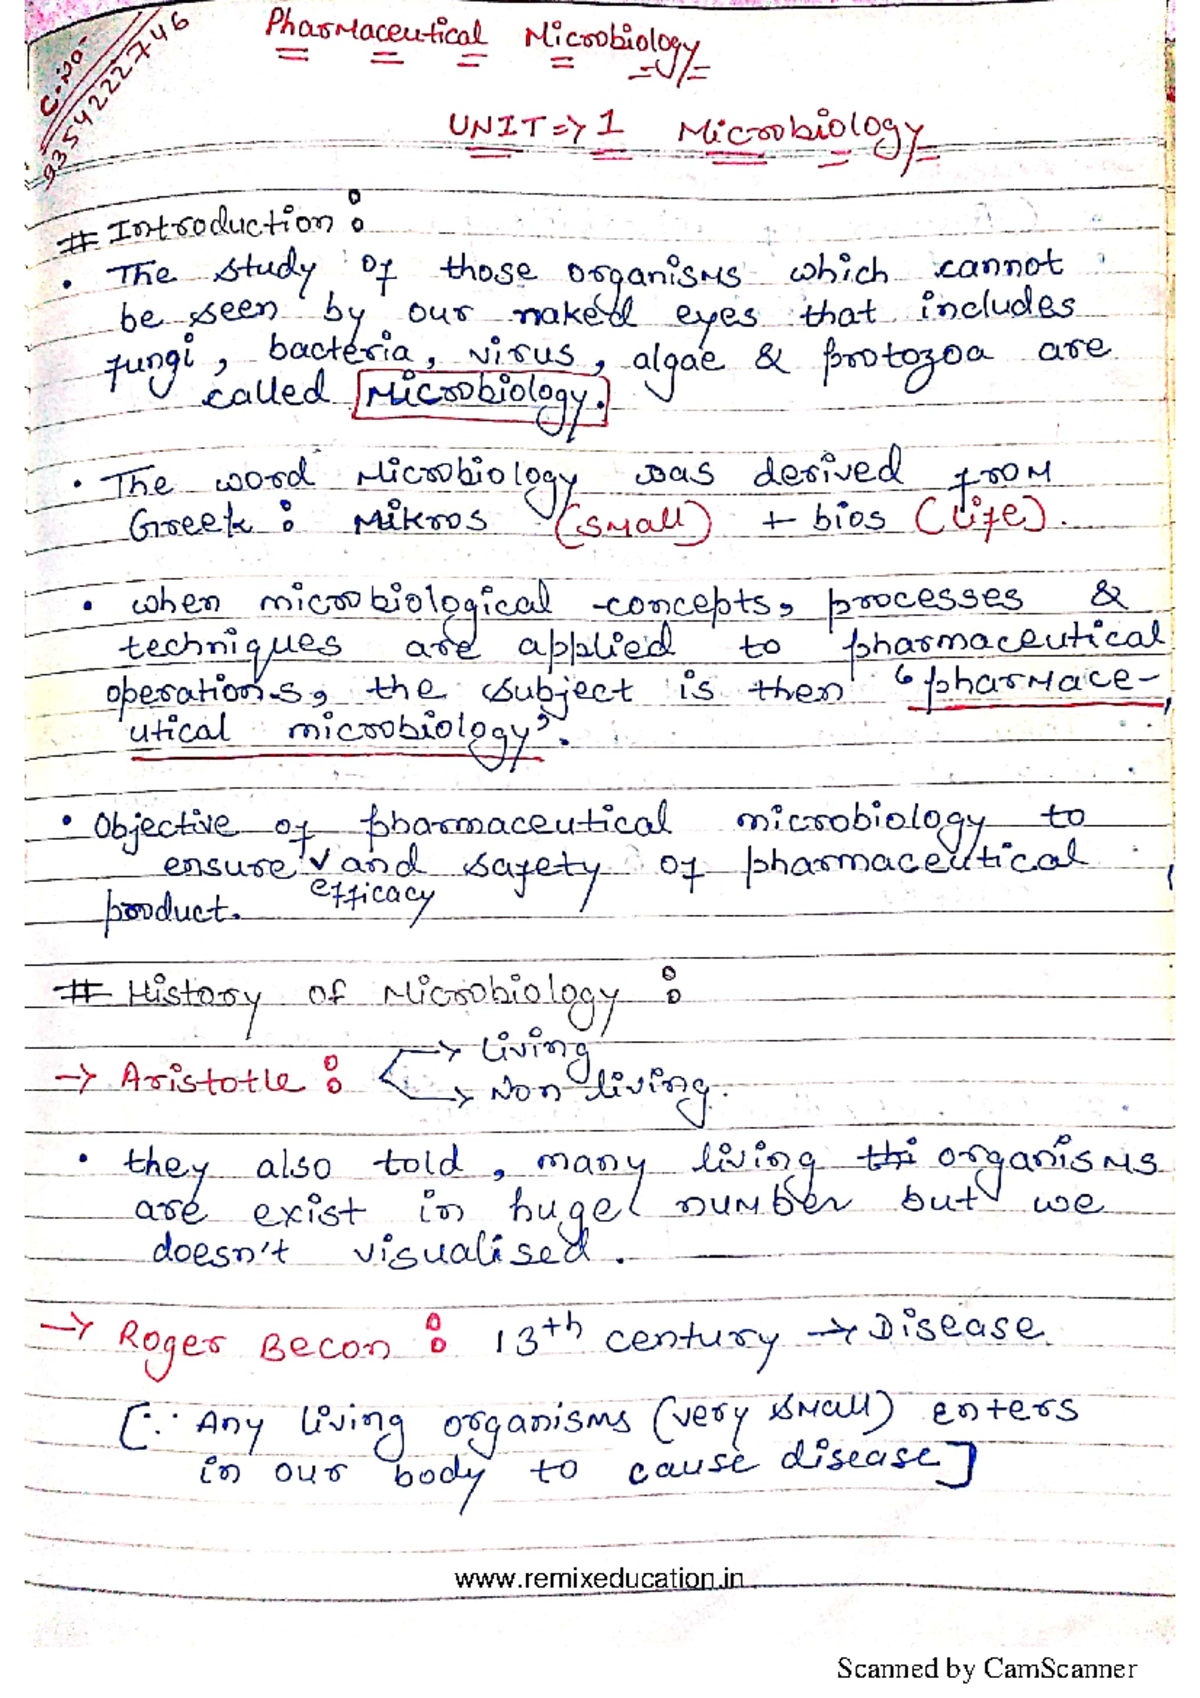 C.NO-
9354222746
Pharmaceutical Microbiology
UNIT => 1 Microbiology
# Introduction :
• The study of those organisms which cannot
be seen by our naked eyes that includes
fungi, bacteria, virus, algae & protozoa are
called Microbiology.
• The word Microbiology was derived from
Greek : Mikros (small) + bios (life).
• when microbiological concepts, processes &
techniques are applied to pharmaceutical
operations, the subject is then 'pharmace-
utical microbiology'.
• Objective of pharmaceutical microbiology to
ensure ∨ and safety of pharmaceutical
efficacy
product.
# History of Microbiology :
→ Living
→ Aristotle :
→ Non living.
• they also told, many living thi organisms
are exist in huge number but we
doesn't visualised.
→ Roger Becon : 13th century → Disease.
[∵ Any living organisms (very small) enters
in our body to cause disease]
www.remixeducation.in
Scanned by CamScanner